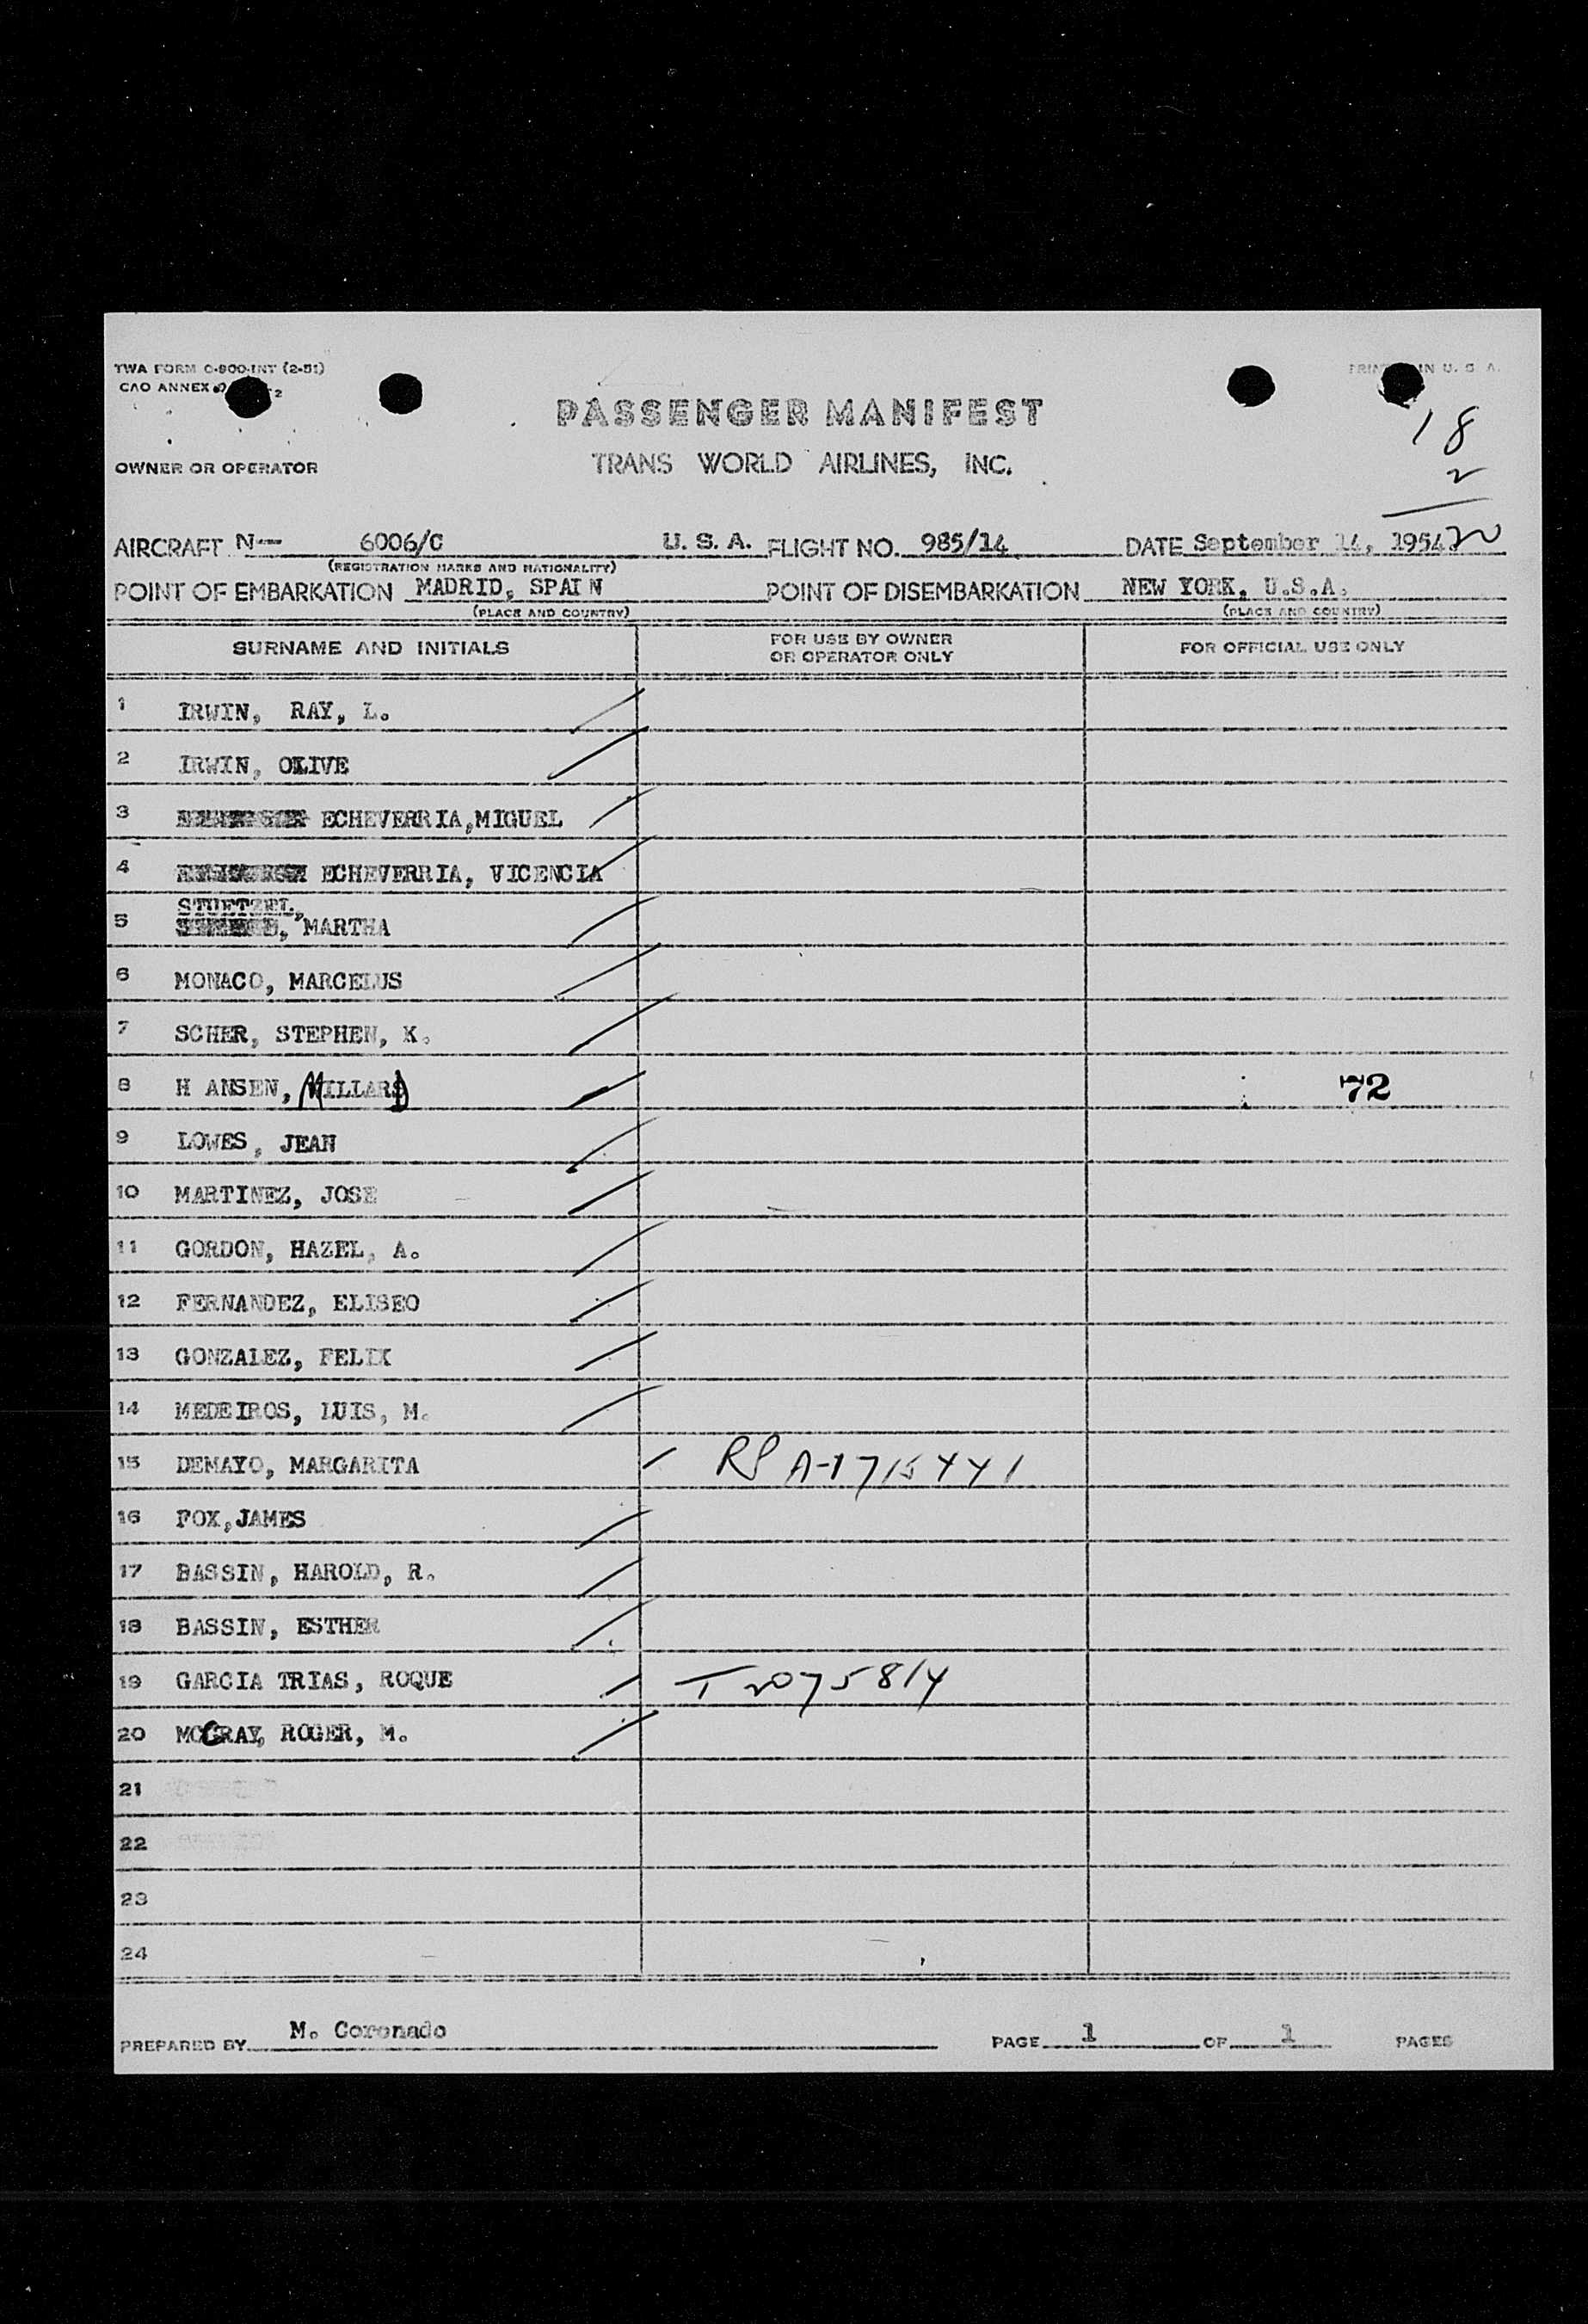 TWA FORM O-800-INT (2-51)
CAO ANNEX
PRINTED IN U. S. A.
PASSENGER MANIFEST
18
OWNER OR OPERATOR
TRANS WORLD AIRLINES, INC.
2
20
AIRCRAFT N- 6006/C U. S. A. FLIGHT NO. 985/14 DATE September 14, 1954
(REGISTRATION MARKS AND NATIONALITY)
POINT OF EMBARKATION MADRID, SPAIN POINT OF DISEMBARKATION NEW YORK, U.S.A.
(PLACE AND COUNTRY) (PLACE AND COUNTRY)
SURNAME AND INITIALS FOR USE BY OWNER OR OPERATOR ONLY FOR OFFICIAL USE ONLY
1 IRWIN, RAY, L.
2 IRWIN, OLIVE
3 ECHEVERRIA,MIGUEL
4 ECHEVERRIA, VICENCIA
STUETZEL,
5 MARTHA
6 MONACO, MARCELUS
7 SCHER, STEPHEN, K.
8 H ANSEN, MILLARD 72
9 LOWES, JEAN
10 MARTINEZ, JOSE
11 GORDON, HAZEL, A.
12 FERNANDEZ, ELISEO
13 GONZALEZ, FELIX
14 MEDEIROS, LUIS, M.
15 DEMAYO, MARGARITA RP A-1715441
16 FOX,JAMES
17 BASSIN, HAROLD, R.
18 BASSIN, ESTHER
19 GARCIA TRIAS, ROQUE T 2075814
20 MCCRAY, ROGER, M.
21
22
23
24
PREPARED BY M. Coronado PAGE 1 OF 1 PAGES